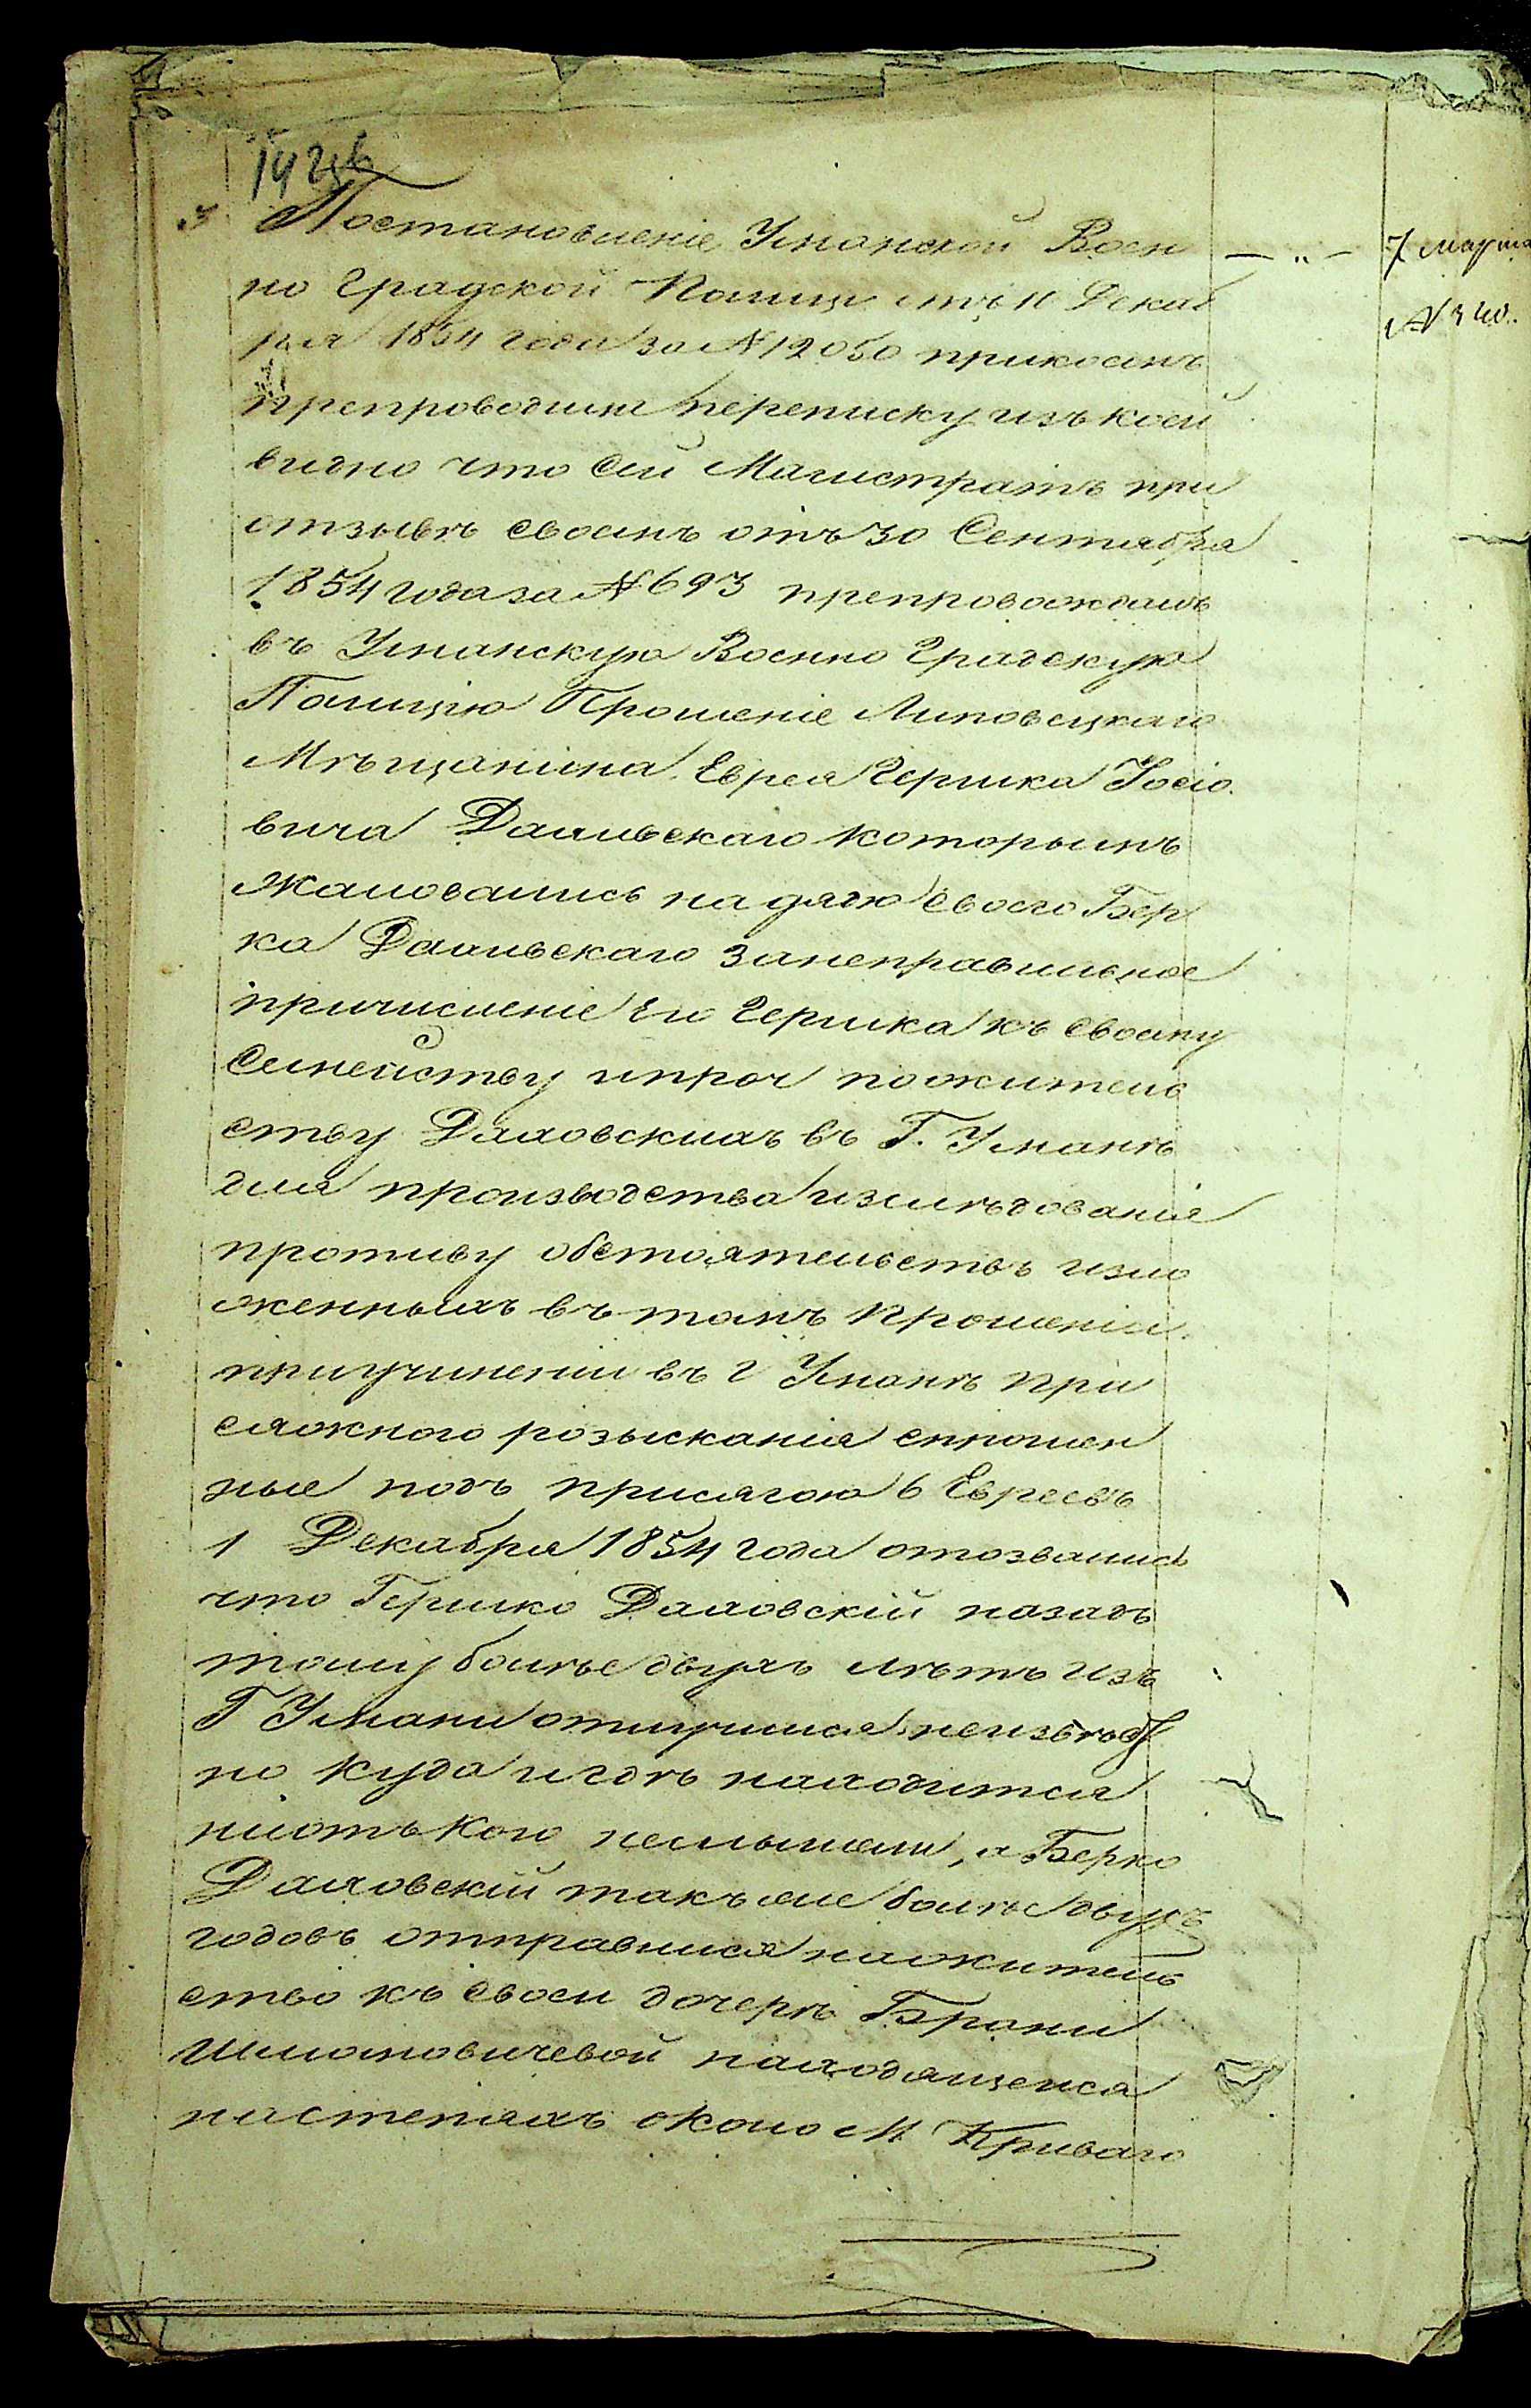 3 Постановленіе Уманской Воен
но Градской Полиціи отъ 11 Декаб
ря 1854 года за № 12050 прикоемъ
препроводила переписку изъ коей
видно что Сей Магистратъ при
отзывѣ своемъ отъ 30 Сентября
1854 года за № 693 препровождалъ
въ Уманскую Военно Градскую
Полицію Прошеніе Липовецкаго
Мѣщанина Еврея Гершка Іосіо
вича Дахновскаго которымъ
жаловались на дядю своего Бер
ка занеправильное
причисленіе Его Гершка къ своему
Семейству ипроч пожитель
ству Даховскихъ въ Г. Уманѣ
для производства изслѣдованія
противу обстоятельствъ изло
женныхъ въ томъ Прошеніи.
приучиненіи въ г Уманѣ При
сяжного розысканія спрошен
ные подъ присягою 6 Евреевъ
1 Декабря 1854 года отозвались
что Гершко Даховскій назадъ
тому болѣе двухъ лѣтъ изъ
Г Умани отлучился неизвѣст
но куда игдѣ находится
ниотъ кого неслышели, а Берко
Даховскій такъ же болѣе двухъ
годовъ отправился нажитель
ство къ своей дочерѣ Брани
Шмоновичевой находящейся
настепяхъ около М Криваго
7 марта